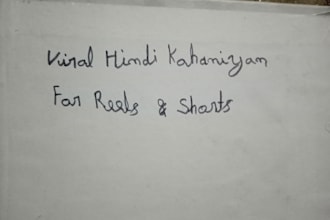 Viral Hindi Kahaniyam
For Reels & Shorts